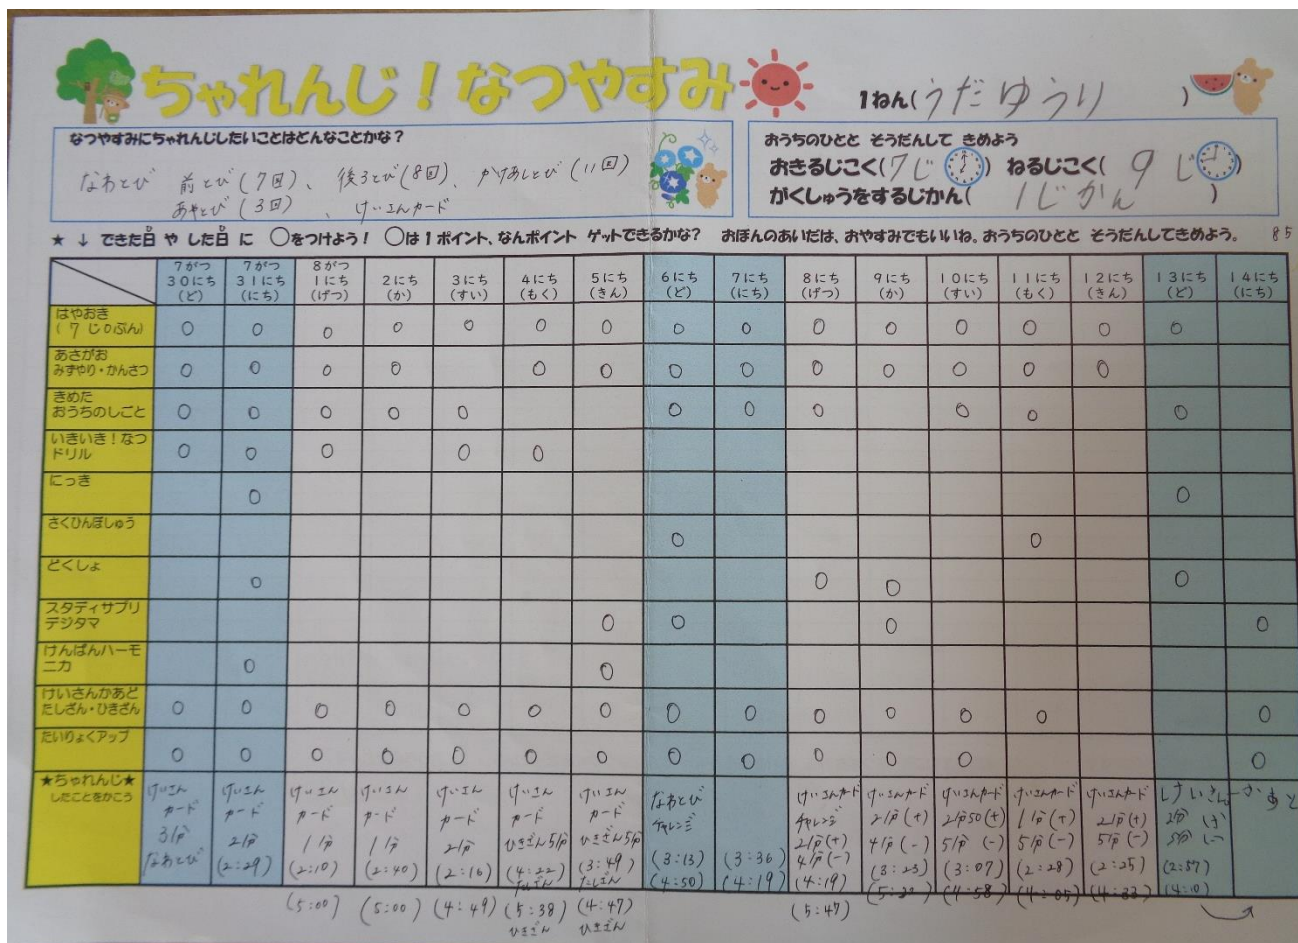 ちゃれんじ！なつやすみ
1ねん(うだゆうり)
なつやすみにちゃれんじしたいことはどんなことかな？
なわとび 前とび(7回)、後ろとび(8回)、かけあしとび(11回)
あやとび(3回)、けいさんカード
おうちのひとと そうだんして きめよう
おきるじこく(7じ) ねるじこく(9じ)
がくしゅうをするじかん(1じかん)
★ ↓ できた日 や した日 に ○をつけよう！ ○は1ポイント、なんポイント ゲットできるかな？ おぼんのあいだは、おやすみでもいいね。おうちのひとと そうだんしてきめよう。 85
7がつ 7がつ 8がつ
30にち 31にち 1にち 2にち 3にち 4にち 5にち 6にち 7にち 8にち 9にち 10にち 11にち 12にち 13にち 14にち
(ど) (にち) (げつ) (か) (すい) (もく) (きん) (ど) (にち) (げつ) (か) (すい) (もく) (きん) (ど) (にち)
はやおき
(7じ0ぷん) ○ ○ ○ ○ ○ ○ ○ ○ ○ ○ ○ ○ ○ ○ ○
あさがお
みずやり・かんさつ ○ ○ ○ ○ ○ ○ ○ ○ ○ ○ ○ ○ ○
きめた
おうちのしごと ○ ○ ○ ○ ○ ○ ○ ○ ○ ○ ○
いきいき！なつ
ドリル ○ ○ ○ ○ ○
にっき ○ ○
さくひんぼしゅう ○ ○
どくしょ ○ ○ ○ ○
スタディサプリ
デジタマ ○ ○ ○ ○
けんばんハーモ
ニカ ○ ○
けいさんかあど
たしざん・ひきざん ○ ○ ○ ○ ○ ○ ○ ○ ○ ○ ○ ○ ○ ○
たいりょくアップ ○ ○ ○ ○ ○ ○ ○ ○ ○ ○ ○ ○ ○
★ちゃれんじ★
したことをかこう
けいさん
カード
3分
なわとび
けいさん
カード
2分
(2:29)
けいさん
カード
1分
(2:10)
(5:00)
けいさん
カード
1分
(2:40)
(5:00)
けいさん
カード
2分
(2:16)
(4:49)
けいさん
カード
ひきざん5分
(4:22)
たしざん
(5:38)
ひきざん
けいさん
カード
ひきざん5分
(3:49)
たしざん
(4:47)
ひきざん
なわとび
チャレンジ
(3:13)
(4:50)
(3:36)
(4:19)
けいさんカード
チャレンジ
2分(+)
4分(-)
(4:19)
(5:47)
けいさんカード
2分(+)
4分(-)
(3:23)
けいさんカード
2分50(+)
5分(-)
(3:07)
(4:58)
けいさんカード
1分(+)
5分(-)
(2:28)
(4:05)
けいさんカード
2分(+)
5分(-)
(2:25)
(4:33)
けいさんーかあど
2分
5分
(2:57)
(4:10)